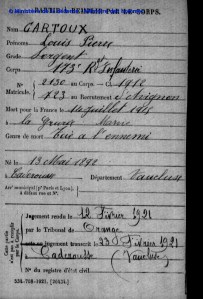 PARTIE À REMPLIR PAR LE CORPS.
Nom CARTOUX
Prénoms Louis Pierre
Grade Sergent
Corps 173e Rt Infanterie
N° 2130 au Corps. — Cl. 1912
Matricule. 123 au Recrutement d'Avignon
Mort pour la France le 14 juillet 1915
à la Marne
Genre de mort Tué à l'ennemi
Né le 13 Mai 1892
à Caderousse Département Vaucluse
Arrt municipal (pr Paris et Lyon),
à défaut rue et N°.
Jugement rendu le 12 Février 1921
par le Tribunal de Orange
jugement transcrit le 23 Février 1921
à Caderousse (Vaucluse)
N° du registre d'état civil
534-708-1921. [26434.]